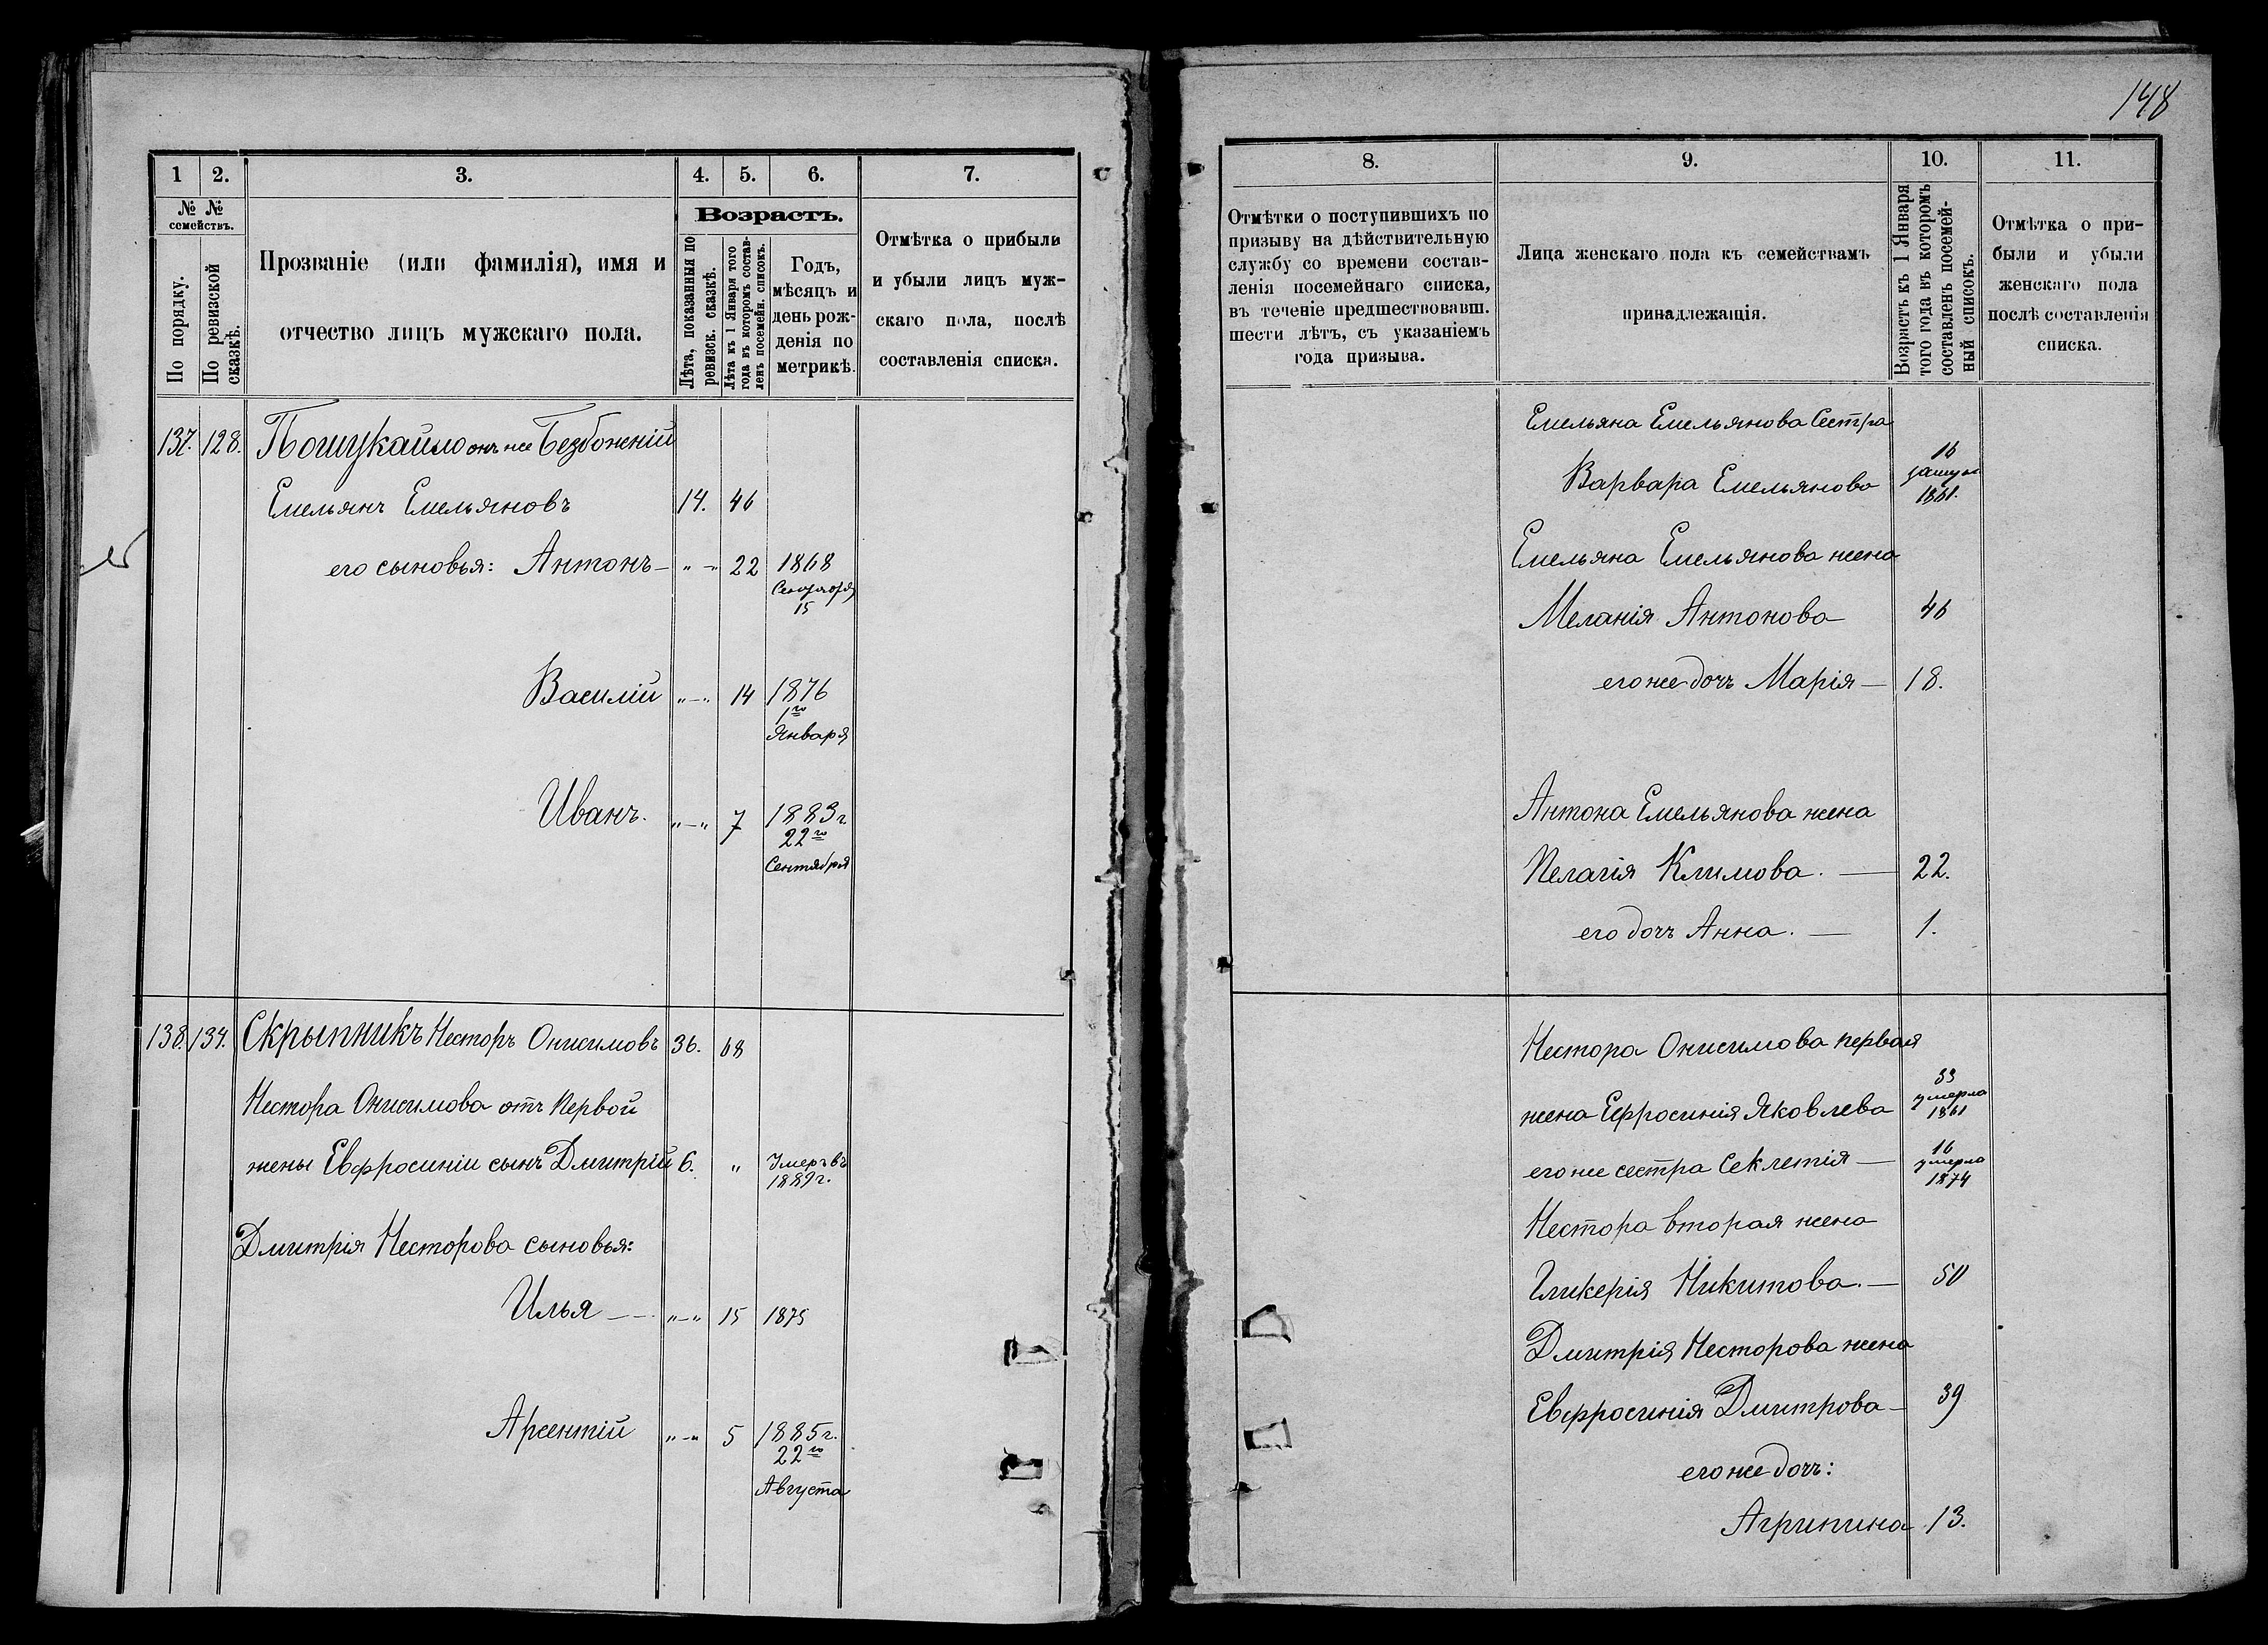 148
1
2.
3.
4.
5.
6.
7.
№ №
семействъ.
По порядку.
По ревизской
сказкѣ.
Прозваніе (или фамилія), имя и
отчество лицъ мужскаго пола.
Возрастъ.
Лѣта, показанныя по
ревизск. сказкѣ.
Лѣта къ 1 Января того
года въ которомъ состав-
ленъ посемейн. списокъ.
Годъ,
мѣсяцъ и
день рож-
денія по
метрикѣ.
Отмѣтка о прибыли
и убыли лицъ муж-
скаго пола, послѣ
составленія списка.
137. 128. Пошукайло онъ же Безбожній
Емельянъ Емельяновъ 14. 46
его сыновья: Антонъ — „ — „ 22 1868
15
Василій „ — „ 14 1876
1го
Января
Иванъ. „ — „ 7 1883 г
22го
Сентября
138. 134. Скрыпникъ Несторъ Онисимовъ 36. 68
Нестора Онисимова отъ первой
жены Евфросиніи сынъ Дмитрій 6. „ Умеръ въ
1889 г.
Дмитрія Несторова сыновья:
Илья — „ — „ 15 1875
Арсентій „ — „ 5 1885 г.
22го
Августа
8.
9.
10.
11.
Отмѣтки о поступившихъ по
призыву на дѣйствительную
службу со времени состав-
ленія посемейнаго списка,
въ теченіе предшествовавш.
шести лѣтъ, съ указаніемъ
года призыва.
Лица женскаго пола къ семействамъ
принадлежащія.
Возрастъ къ 1 Января
того года въ которомъ
составленъ посемей-
ный списокъ.
Отмѣтка о при-
были и убыли
женскаго пола
послѣ составленія
списка.
Емельяна Емельянова Сестра
Варвара Емельянова 16
замуж
1861.
Емельяна Емельянова жена
Меланія Антонова 46
его же дочь Марія — 18.
Антона Емельянова жена
Пелагія Климова. — 22.
его дочь Анна. — 1.
Нестора Онисимова первая
жена Ефросинія Яковлева 33
умерла
1861
его же сестра Секлетія — 16
умерла
1874
Нестора вторая жена
Гликерія Никитова. — 50
Дмитрія Несторова жена
Евфросинія Дмитрова — 39
его же дочь:
Агрипина 13.